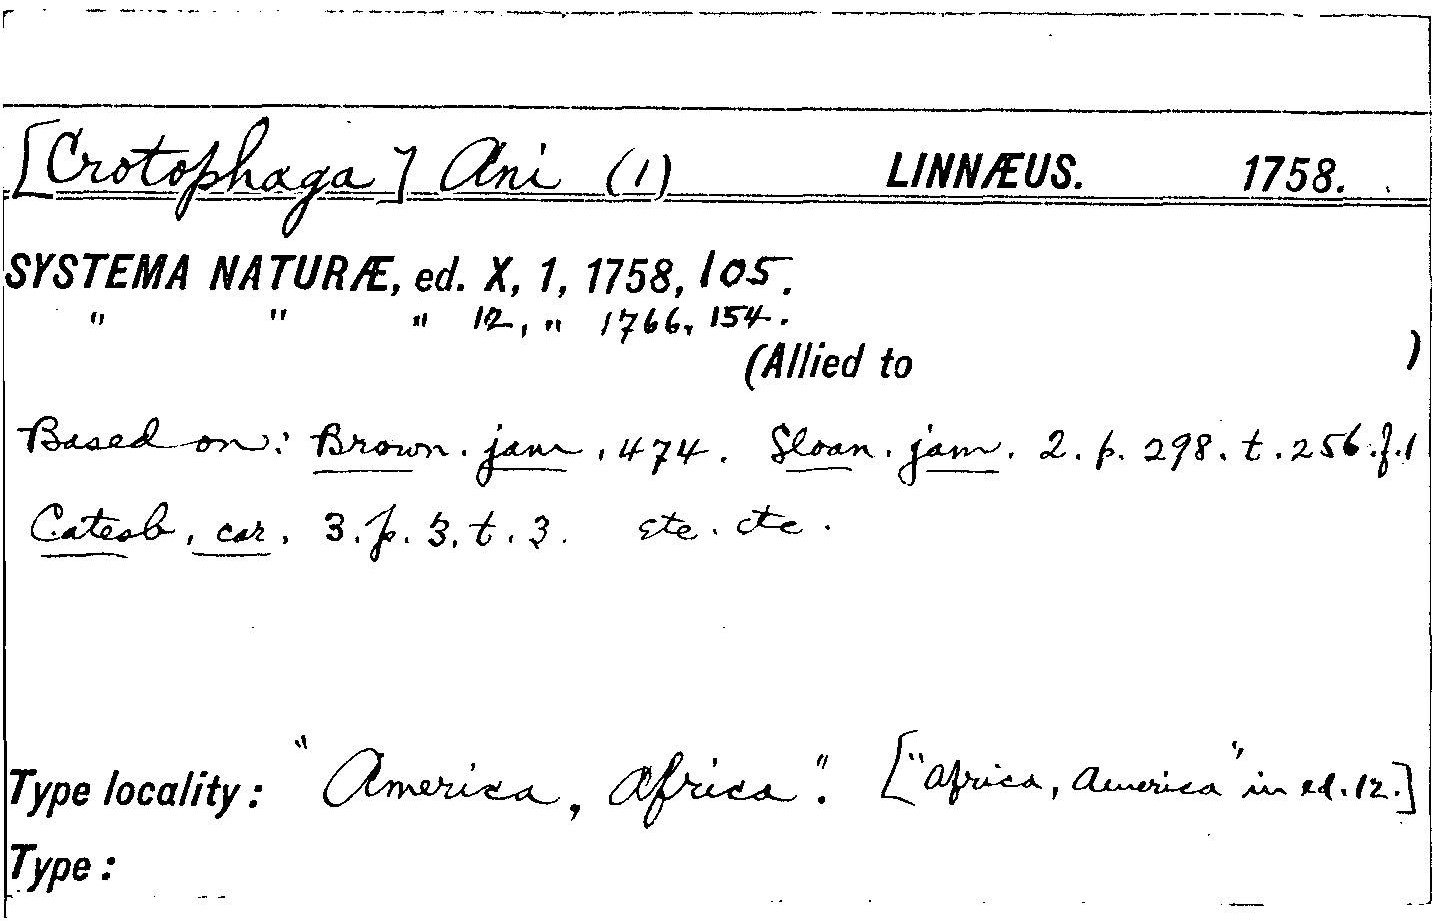 [Crotophaga] Ani (1) LINNÆUS. 1758.
SYSTEMA NATURÆ, ed. X, 1, 1758, 105.
" " " 12, " 1766, 154.
(Allied to )
Based on: Brown. jam. 474. Sloan. jam. 2. p. 298. t. 256. f. 1
Catesb. car. 3. p. 3. t. 3. etc. etc.
Type locality: "America, Africa". ["Africa, America" in ed. 12.]
Type: